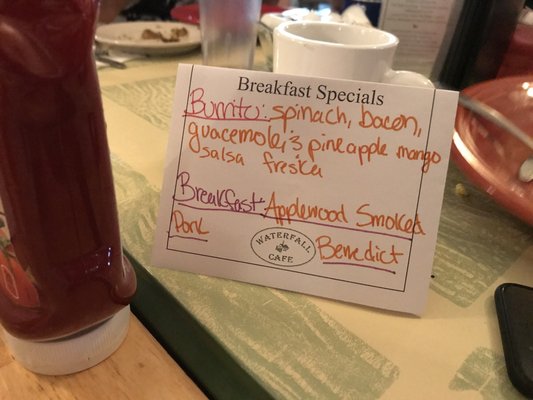 Breakfast Specials
Burrito: spinach, bacon,
guacemole, & pineapple mango
salsa freska
Breakfast: Applewood Smoked
Pork Benedict
WATERFALL
CAFE